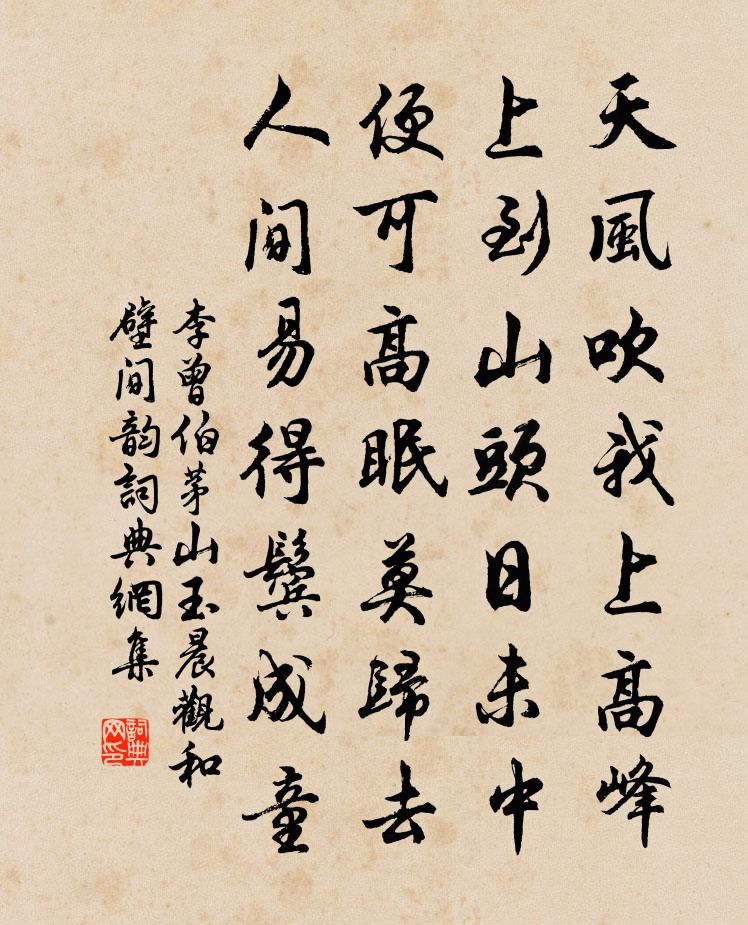 天風吹我上高峰
上到山頭日未中
便可高眠莫歸去
人間易得鬢成童
李曾伯茅山玉晨觀和
壁間韵詞典網集
詞典网印